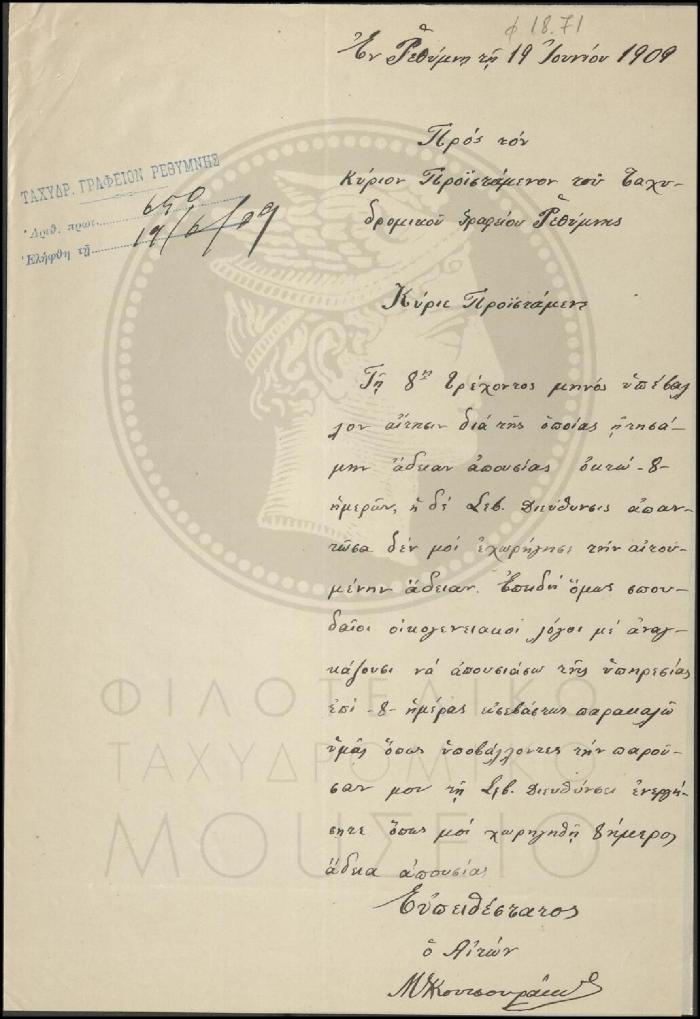 φ 18.71
Ἐν Ῥεθύμνῃ τῇ 19 Ἰουνίου 1909
ΤΑΧΥΔΡ. ΓΡΑΦΕΙΟΝ ΡΕΘΥΜΝΗΣ
Ἀριθ. πρωτ. 650
Ἐλήφθη τῇ 19/6/09
Πρός τόν
Κύριον Προϊστάμενον τοῦ Ταχυ
δρομικοῦ Γραφείου Ῥεθύμνης
Κύριε Προϊστάμενε
Τῇ 8ῃ τρέχοντος μηνός ὑπέβαλ
λον αἴτησιν διά τῆς ὁποίας ᾐτησά
μην ἄδειαν ἀπουσίας ὀκτώ -8-
ἡμερῶν, ἡ δέ Σεβ. Διεύθυνσις ἀπαν
τῶσα δέν μοί ἐχορήγησε τήν αἰτου
μένην ἄδειαν. Ἐπειδή ὅμως σπου
δαῖοι οἰκογενειακοί λόγοι μέ ἀναγ
κάζουσι νά ἀπουσιάσω τῆς ὑπηρεσίας
ἐπί -8- ἡμέρας εὐσεβάστως παρακαλῶ
ὑμᾶς ὅπως ὑποβάλλοντες τήν παροῦ
σαν μου τῇ Σεβ. Διευθύνσει ἐνεργή
σητε ὅπως μοί χωρηγηθῇ 8ήμερος
ἄδεια ἀπουσίας
Εὐπειθέστατος
ὁ Αἰτῶν
ΦΙΛΟΤΕΛΙΚΟ
ΤΑΧΥΔΡΟΜΙΚΟ
ΜΟΥΣΕΙΟ